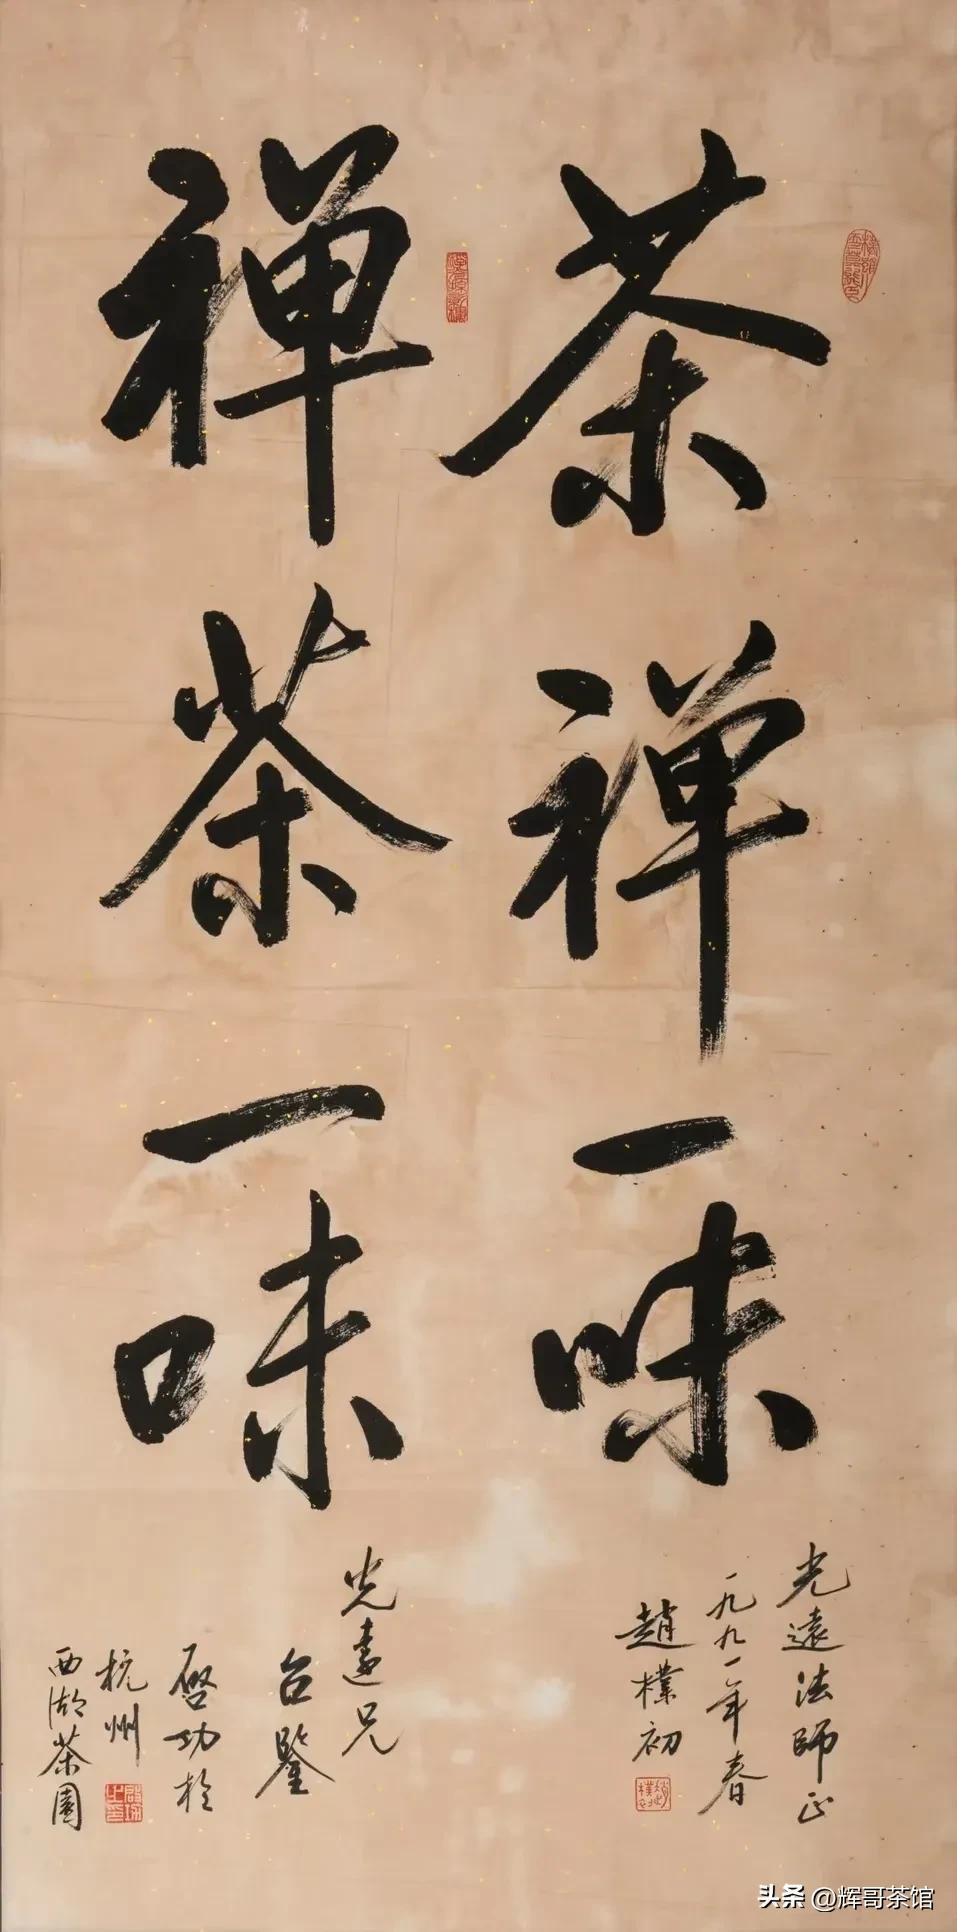 茶禅一味
光遠法師正
一九九一年春
趙樸初
禅茶一味
光遠兄
台鑒
啓功於
杭州
西湖茶園
头条 @辉哥茶馆